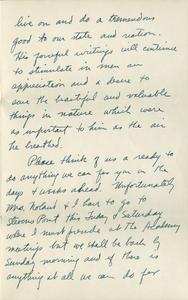 live on and do a tremendous
good to our state and nation.
His forceful writings will continue
to stimulate in men an
appreciation and a desire to
save the beautiful and valuable
things in nature which were
as important to him as the air
he breathed.
Please think of us a ready to
do anything we can for you in the
days & weeks ahead. Unfortunately
Mrs. Roland & I have to go to
Stevens Point this Friday & Saturday
where I must preside at The Academy
meetings but we shall be back by
Sunday morning and if there is
anything at all we can do for